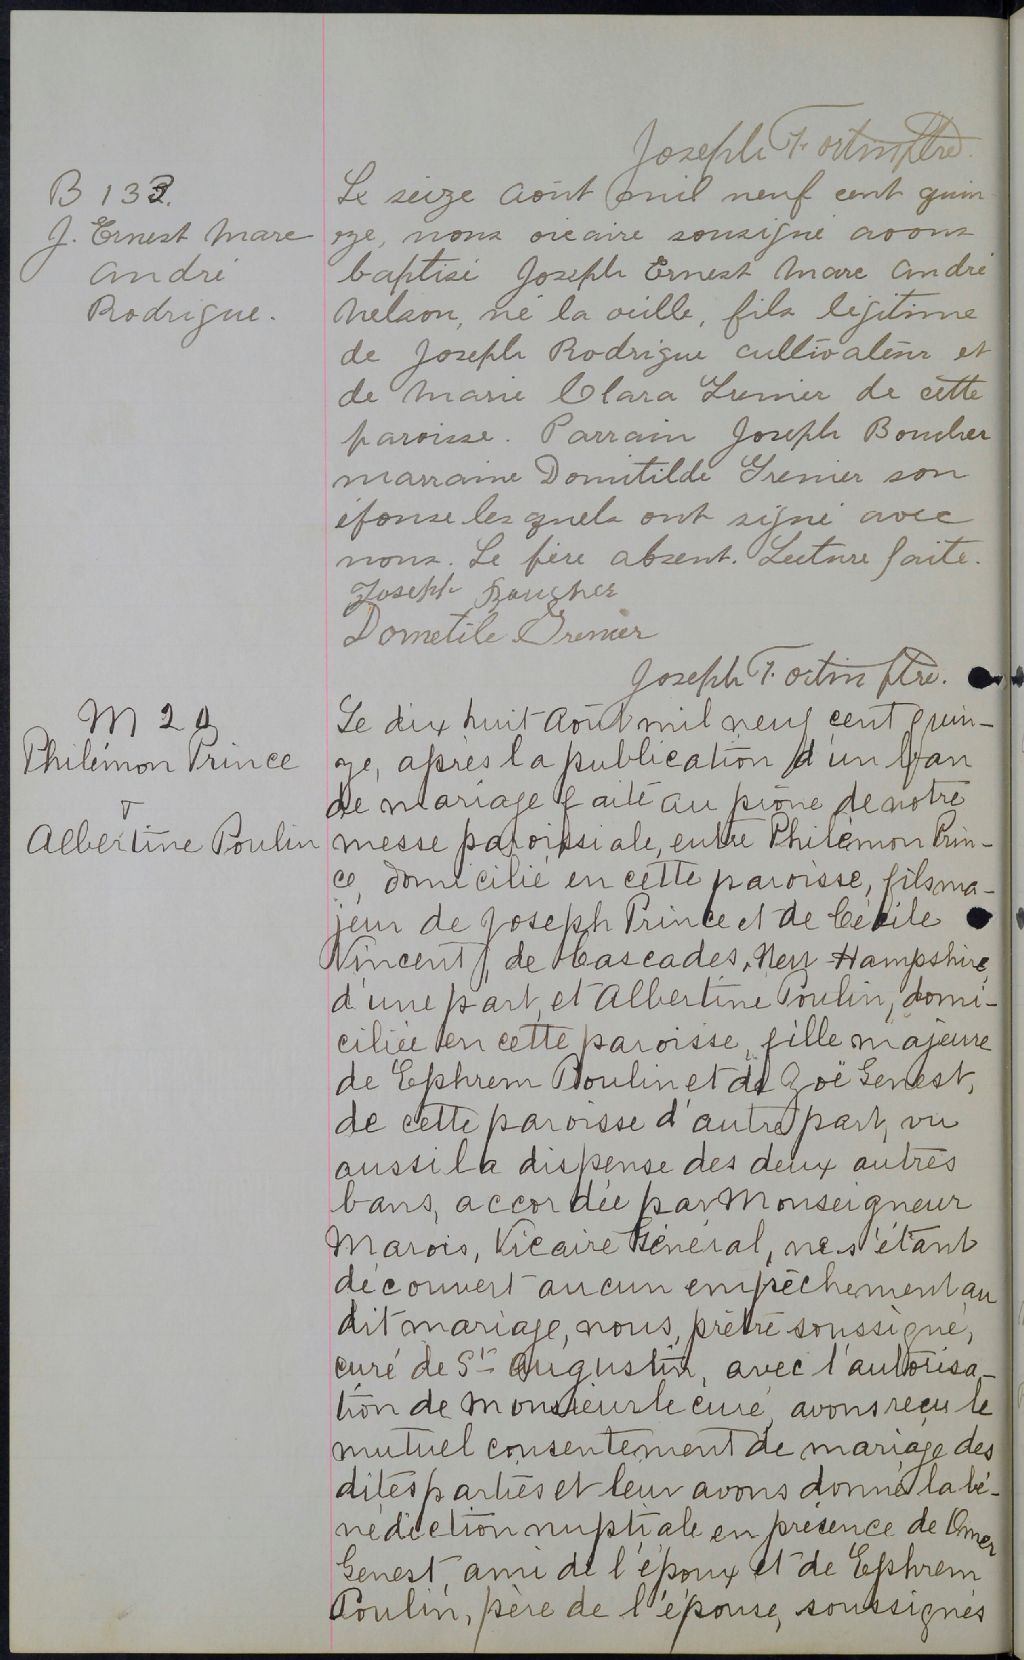 Joseph Fortin ptre.
B 133.
J. Ernest Marc
André
Rodrigue.
Le seize août mil neuf cent quin
ze, nous vicaire sousigné avons
baptisé Joseph Ernest Marc André
Nelson, né la veille, fils légitime
de Joseph Rodrigue cultivateur et
de Marie Clara Grenier de cette
paroisse. Parrain Joseph Boucher
marraine Domitilde Grenier son
épouse lesquels ont signé avec
nous. Le père absent. Lecture faite.
Joseph Boucher
Dometile Grenier
Joseph Fortin ptre.
M 20
Philémon Prince
&
Albertine Poulin
Le dix huit Août mil neuf cent quin-
ze, après la publication d'un ban
de mariage faite au prône de notre
messe paroissiale, entre Philémon Prin-
ce, domicilié en cette paroisse, fils ma-
jeur de Joseph Prince et de Cécile
Vincent, de Cascades, New Hampshire,
d'une part, et Albertine Poulin, domi-
ciliée en cette paroisse, fille majeure
de Ephrem Poulin et de Zoë Genest,
de cette paroisse d'autre part, vu
aussi la dispense des deux autres
bans, accordée par Monseigneur
Marois, Vicaire Général, ne s'étant
découvert aucun empêchement au
dit mariage, nous, prêtre soussigné,
curé de St Augustin, avec l'autorisa-
tion de Monsieur le curé, avons reçu le
mutuel consentement de mariage des
dites parties et leur avons donné la bé-
nédiction nuptiale en présence de Omer
Genest, ami de l'époux et de Ephrem
Poulin, père de l'épouse, soussignés